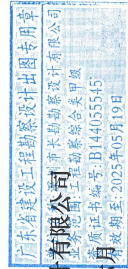 广东省建设工程勘察设计出图专用章
市长勘勘察设计有限公司
有限公司
业务范围:工程勘察综合类甲级
资质证书编号:B144055545
有效期至:2025年05月19日
月